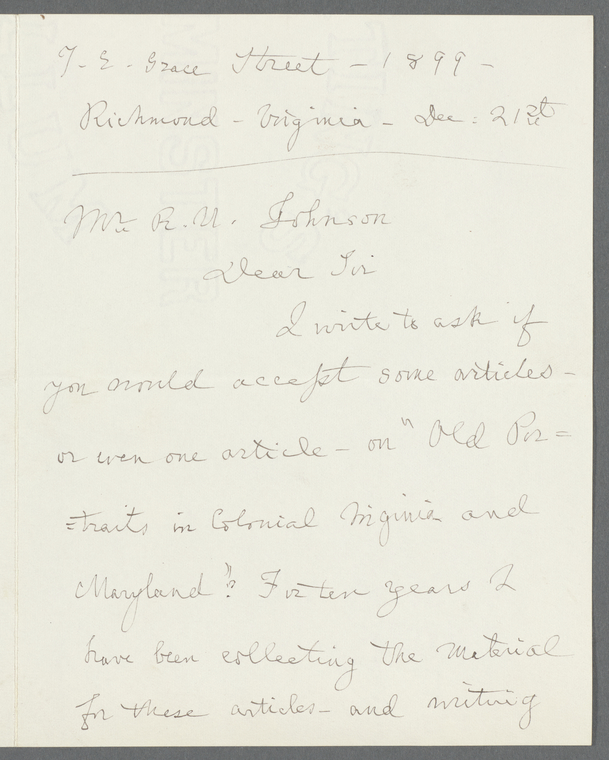 7- E- Grace Street - 1899 -
Richmond - Virginia - Dec: 21st
Mr R. U. Johnson
Dear Sir
I write to ask if
you would accept some articles -
or even one article - on "Old Por=
=traits in Colonial Virginia and
Maryland"? For ten years I
have been collecting the material
for these articles - and writing